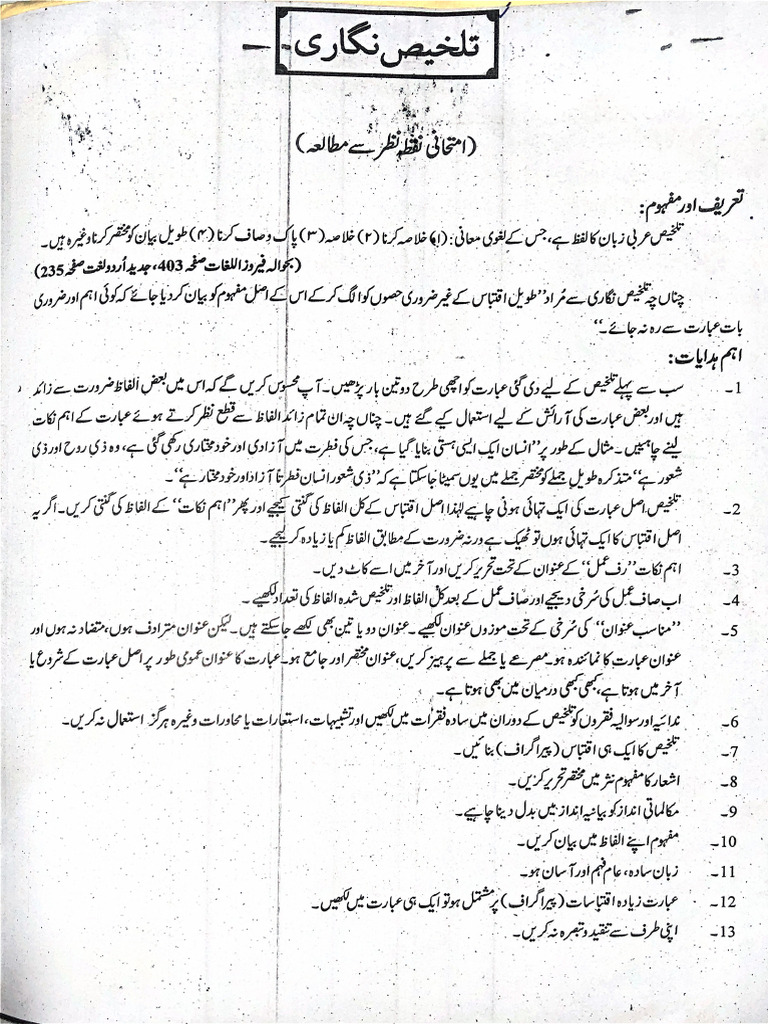 تلخیص نگاری
(امتحانی نقطہ نظر سے مطالعہ)
تعریف اور مفہوم:
تلخیص عربی زبان کا لفظ ہے، جس کے لغوی معانی: (۱) خلاصہ کرنا (۲) خلاصہ (۳) پاک و صاف کرنا (۴) طویل بیان کو مختصر کرنا وغیرہ ہیں۔
(بحوالہ فیروز اللغات صفحہ 403، جدید اُردو لغت صفحہ 235)
چناں چہ تلخیص نگاری سے مُراد ”طویل اقتباس کے غیر ضروری حصوں کو الگ کر کے اس کے اصل مفہوم کو بیان کر دیا جائے کہ کوئی اہم اور ضروری
بات عبارت سے رہ نہ جائے۔“
اہم ہدایات:
1۔ سب سے پہلے تلخیص کے لیے دی گئی عبارت کو اچھی طرح دو تین بار پڑھیں۔ آپ محسوس کریں گے کہ اس میں بعض الفاظ ضرورت سے زائد
ہیں اور بعض عبارت کی آرائش کے لیے استعمال کیے گئے ہیں۔ چناں چہ ان تمام زائد الفاظ سے قطع نظر کرتے ہوئے عبارت کے اہم نکات
لینے چاہییں۔ مثال کے طور پر ”انسان ایک ایسی ہستی بنایا گیا ہے، جس کی فطرت میں آزادی اور خود مختاری رکھی گئی ہے، وہ ذی روح اور ذی
شعور ہے“ متذکرہ طویل جملے کو مختصر جملے میں یوں سمیٹا جا سکتا ہے کہ ”ذی شعور انسان فطرتاً آزاد اور خود مختار ہے“۔
2۔ تلخیص، اصل عبارت کی ایک تہائی ہونی چاہیے لہٰذا اصل اقتباس کے کل الفاظ کی گنتی کیجیے اور پھر ”اہم نکات“ کے الفاظ کی گنتی کریں۔ اگر یہ
اصل اقتباس کا ایک تہائی ہوں تو ٹھیک ہے ورنہ ضرورت کے مطابق الفاظ کم یا زیادہ کر لیجیے۔
3۔ اہم نکات ”رف عمل“ کے عنوان کے تحت تحریر کریں اور آخر میں اسے کاٹ دیں۔
4۔ اب صاف عمل کی سُرخی دیجیے اور صاف عمل کے بعد کل الفاظ اور تلخیص شدہ الفاظ کی تعداد لکھیے۔
5۔ ”مناسب عنوان“ کی سُرخی کے تحت موزوں عنوان لکھیے۔ عنوان دو یا تین بھی لکھے جا سکتے ہیں۔ لیکن عنوان مترادف ہوں، متضاد نہ ہوں اور
عنوان عبارت کا نمائندہ ہو۔ مصرعے یا جملے سے پرہیز کریں، عنوان مختصر اور جامع ہو۔ عبارت کا عنوان عمومی طور پر اصل عبارت کے شروع یا
آخر میں ہوتا ہے، کبھی کبھی درمیان میں بھی ہوتا ہے۔
6۔ ندائیہ اور سوالیہ فقروں کو تلخیص کے دوران میں سادہ فقرات میں لکھیں اور تشبیہات، استعارات یا محاورات وغیرہ ہرگز استعمال نہ کریں۔
7۔ تلخیص کا ایک ہی اقتباس (پیراگراف) بنائیں۔
8۔ اشعار کا مفہوم نثر میں مختصر تحریر کریں۔
9۔ مکالماتی انداز کو بیانیہ انداز میں بدل دینا چاہیے۔
10۔ مفہوم اپنے الفاظ میں بیان کریں۔
11۔ زبان سادہ، عام فہم اور آسان ہو۔
12۔ عبارت زیادہ اقتباسات (پیراگراف) پر مشتمل ہو تو ایک ہی عبارت میں لکھیں۔
13۔ اپنی طرف سے تنقید و تبصرہ نہ کریں۔